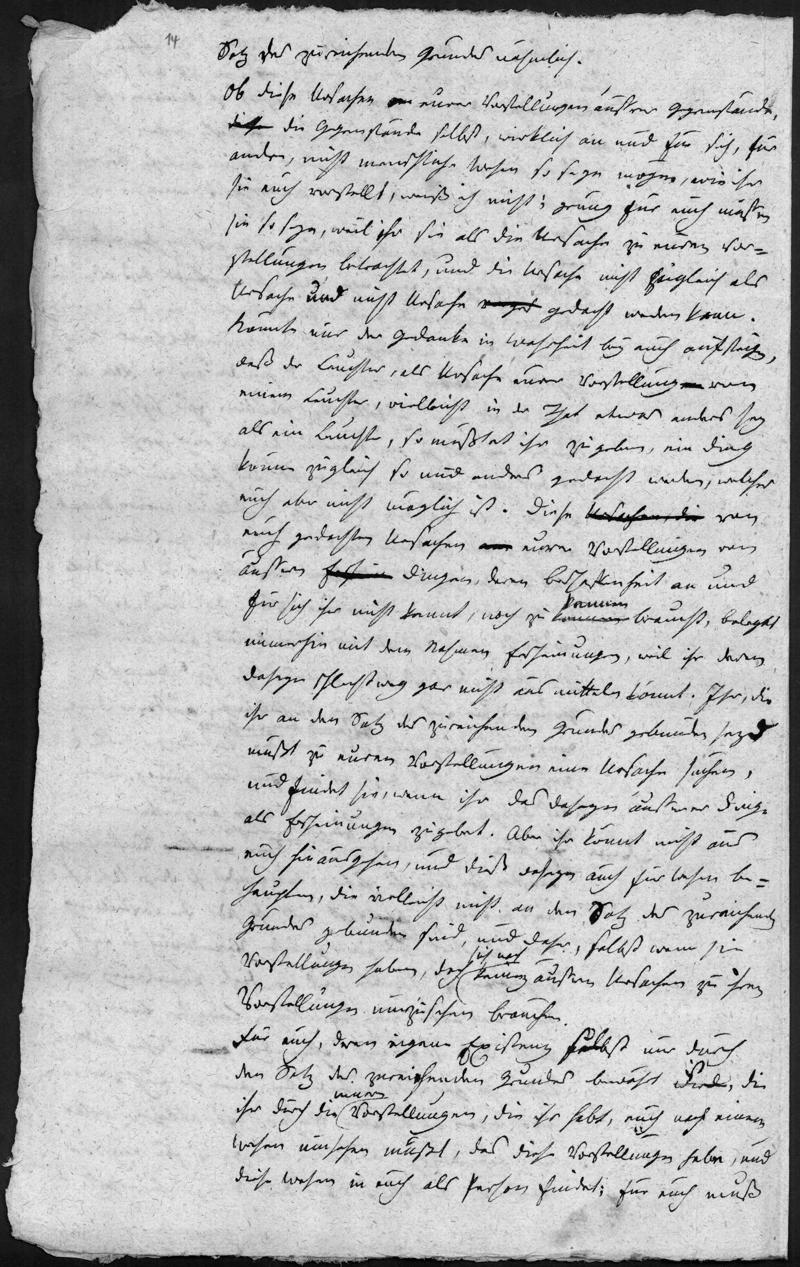 14
Satz des zureichenden Grundes nähmlich.
Ob diese Ursachen eurer Vorstellungen äusserer Gegenstände,
die Gegenstände selbst, wirklich an und für sich, für
andere, nicht menschliche Wesen so seyn mögen, wie ihr
sie euch vorstellt, weiß ich nicht; genug für euch müssen
sie so seyn, weil ihr sie als die Ursache zu euren Vor=
stellungen betrachtet, und die Ursache nicht zugleich als
Ursache und nicht Ursache gedacht werden kann.
Könnte nur der Gedanke in Wahrheit bey euch aufsteigen,
daß der Leuchter, als Ursache eurer Vorstellung von
einem Leuchter, vielleicht in der That etwas anders sey
als ein Leuchter, so müßtet ihr zugeben, ein Ding
könne zugleich so und anders gedacht werden, welches
euch aber nicht möglich ist. Diese Ursachen, die von
euch gedachten Ursachen eurer Vorstellungen von
äussern Dingen, deren Beschaffenheit an und
für sich ihr nicht kennt, noch zu kennen braucht, belegt
immerhin mit dem Nahmen Erscheinungen, weil ihr deren
Daseyn schlechtweg gar nicht ausmitteln könnt. Ihr, die
ihr an den Satz des zureichenden Grundes gebunden seyd
müßt zu euren Vorstellungen eine Ursache suchen,
und findet sie, wenn ihr das Daseyn äusserer Dinge
als Erscheinungen zugebt. Aber ihr könnt nicht aus
euch hinausgehen, und dieß Daseyn auch für Wesen be=
haupten, die vielleicht nicht an den Satz des zureichenden
Grundes gebunden sind, und daher, selbst wenn sie
Vorstellungen haben, sich nach äussern Ursachen zu ihren
Vorstellungen umzusehen brauchen.
Für euch, deren eigene Existenz selbst nur durch
den Satz des zureichenden Grundes bewährt wird, die
ihr durch die Vorstellungen, die ihr habt, euch nach einem
Wesen umsehen müßt, das diese Vorstellungen habe, und
dieses Wesen in euch als Person findet; für euch muß